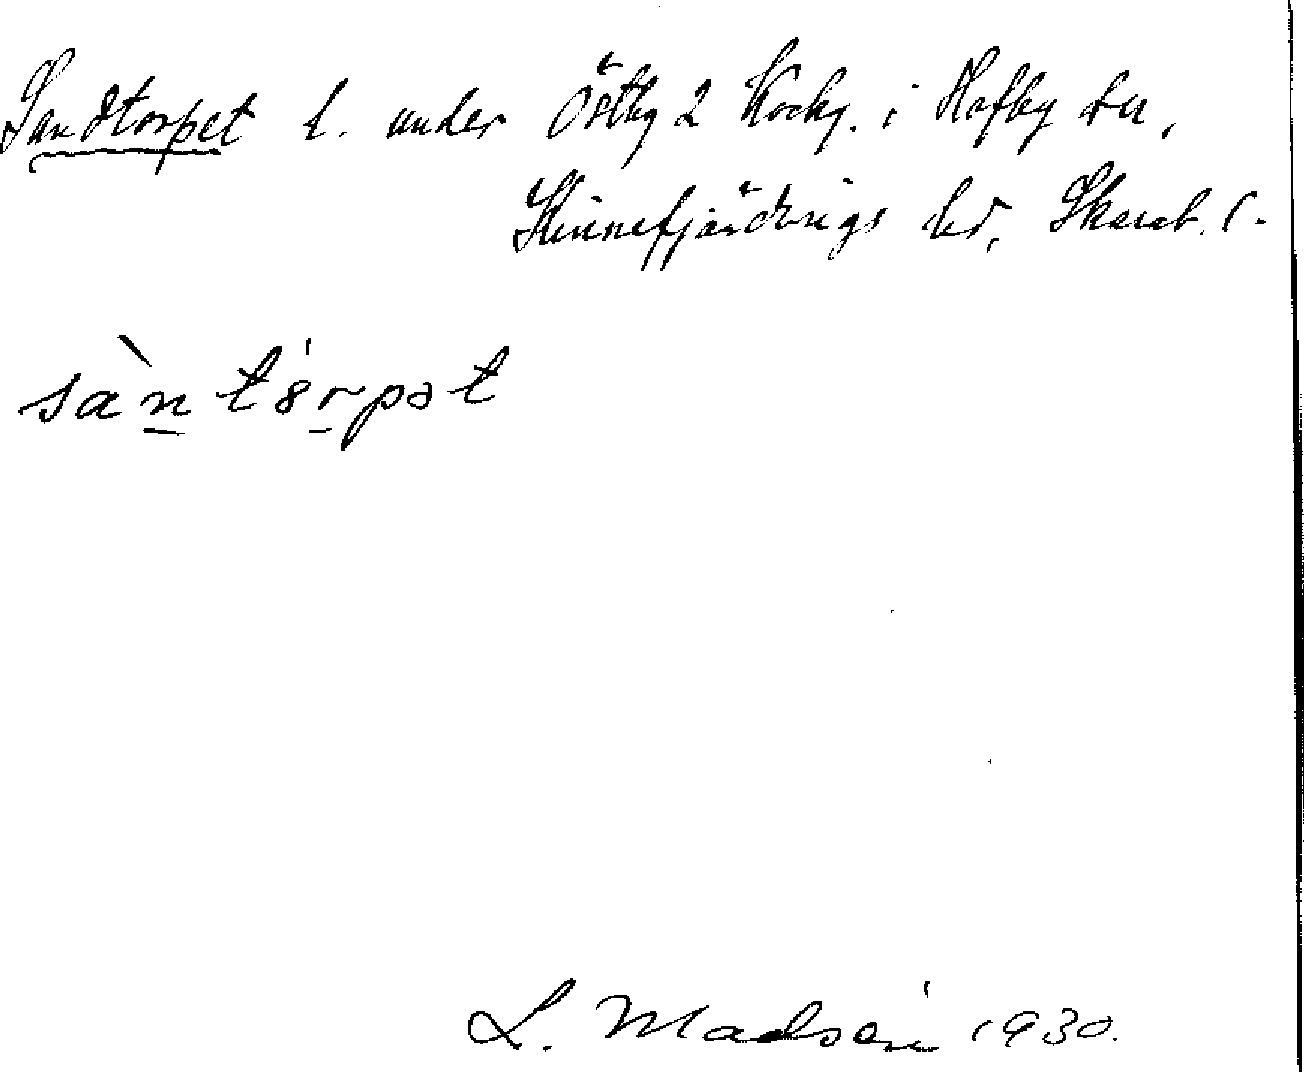 Sandtorpet l. under Östby 2 Kocky. i Hafby sn,
Kinnefjärdings hd, Skarab. l.
sàntórpət
L. Madsén 1930.